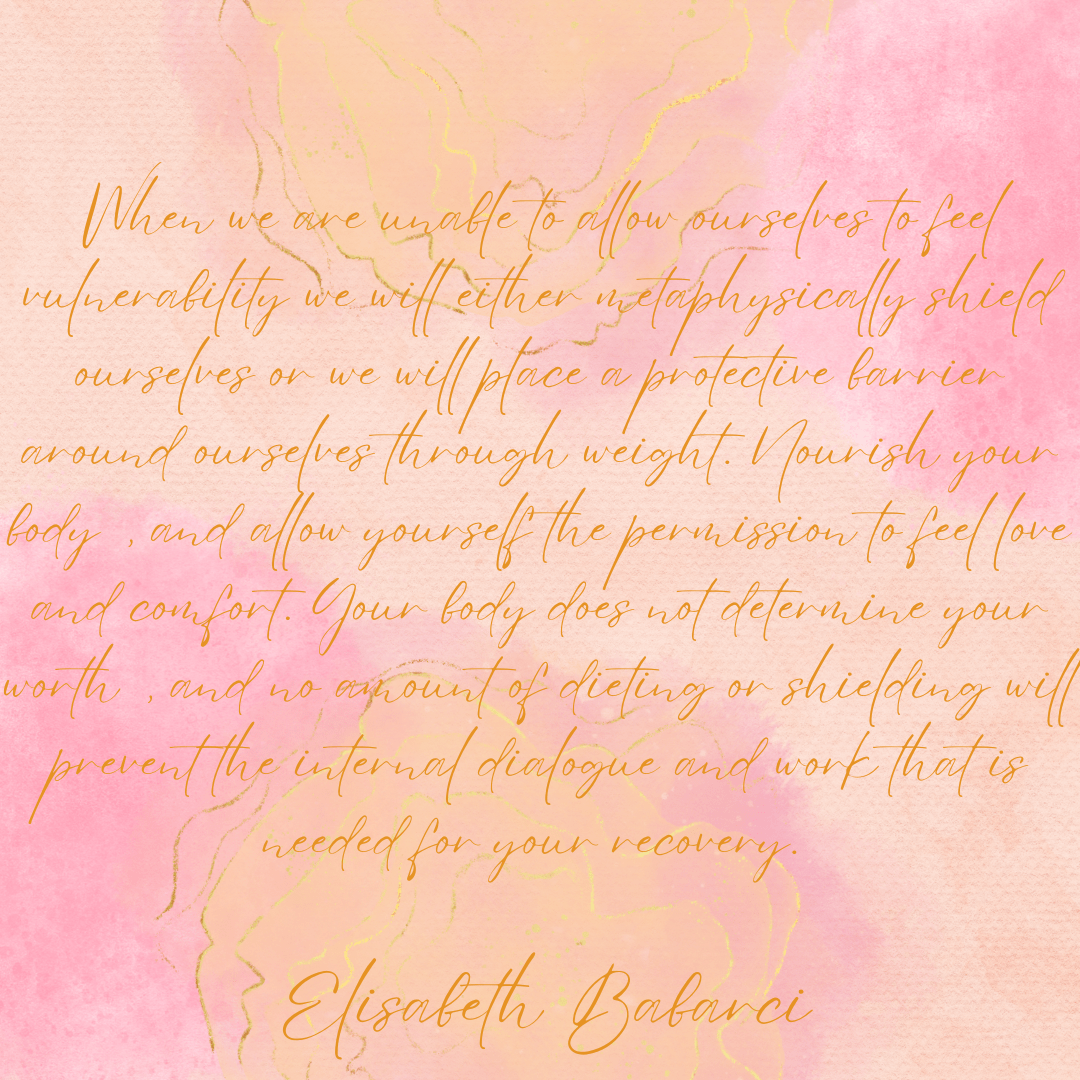 When we are unable to allow ourselves to feel
vulnerability we will either metaphysically shield
ourselves or we will place a protective barrier
around ourselves through weight. Nourish your
body , and allow yourself the permission to feel love
and comfort. Your body does not determine your
worth , and no amount of dieting or shielding will
prevent the internal dialogue and work that is
needed for your recovery.
Elisabeth Babarci